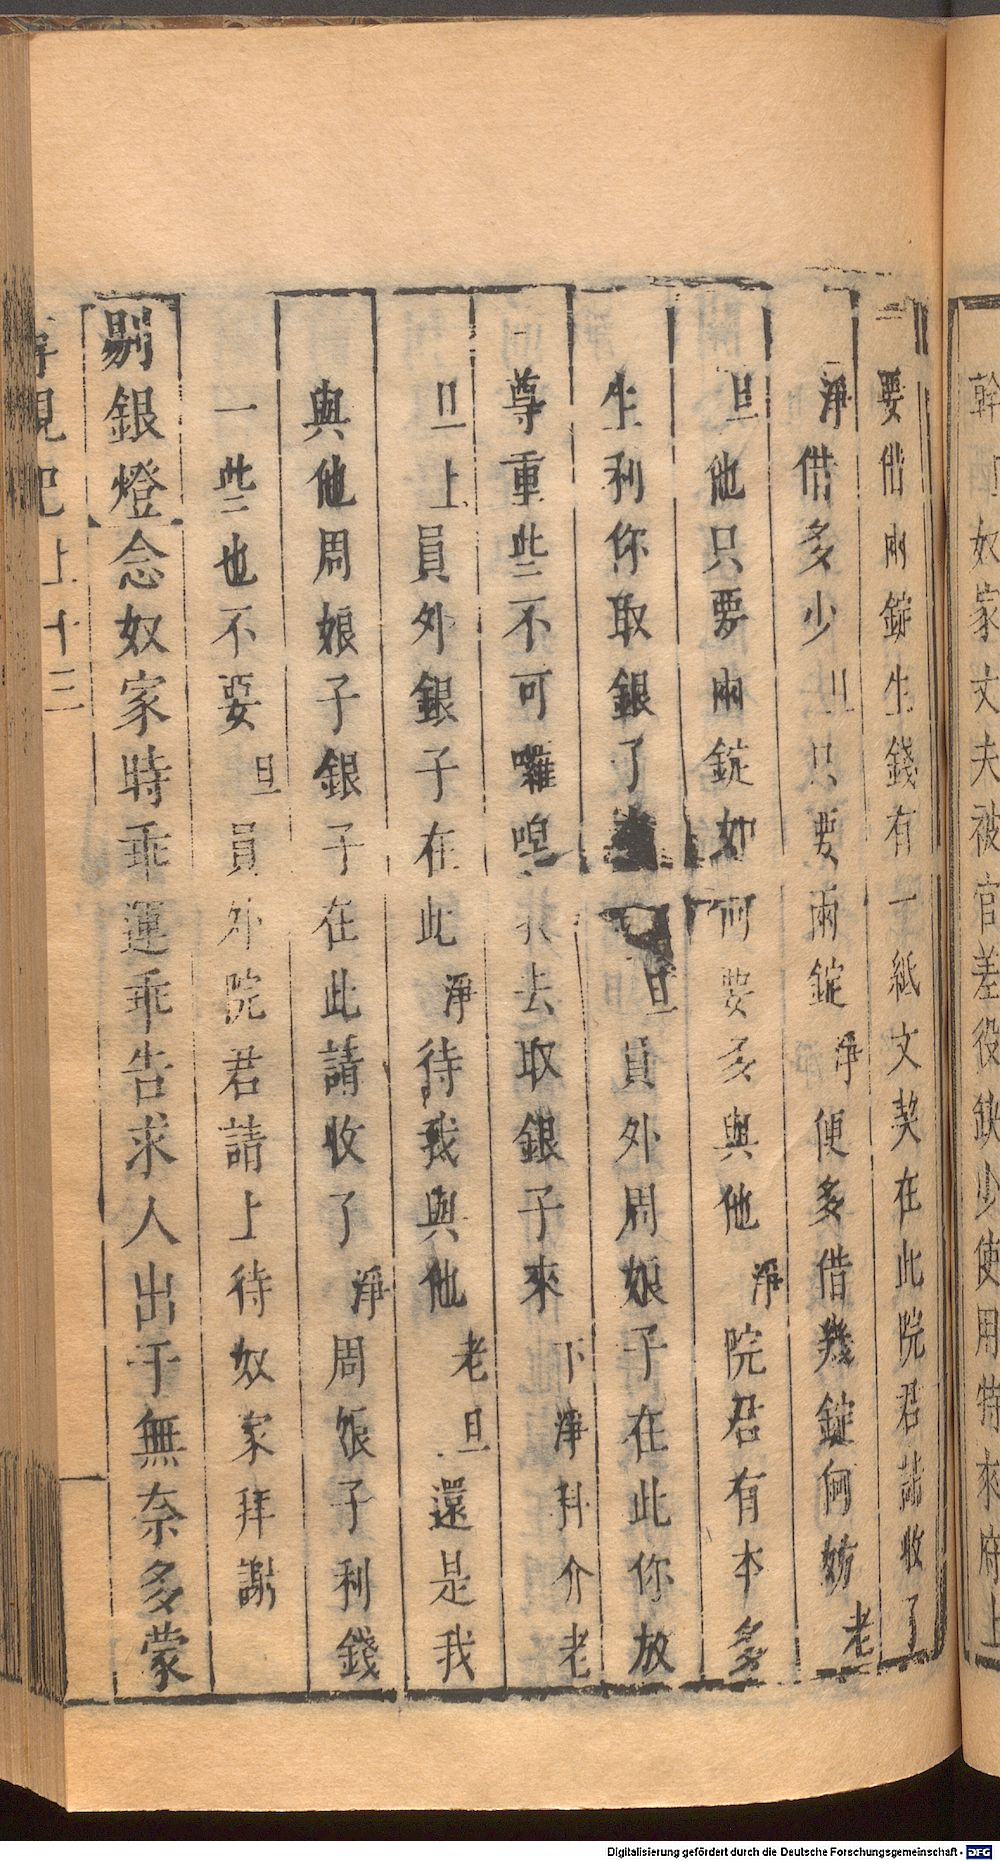 幹旦奴家丈夫被官差役缺少使用特來府上
要借兩錠生錢有一紙文契在此院君請收了
淨借多少旦只要兩錠淨便多借幾錠何妨老
旦他只要兩錠如何要多與他淨院君有本多
生利你取銀了旦員外周娘子在此你放
尊重些不可囉唣我去取銀子來下淨科介老
旦上員外銀子在此淨待我與他老旦還是我
與他周娘子銀子在此請收了淨周娘子利錢
一些也不要旦員外院君請上待奴家拜謝
剔銀燈念奴家時乖運乖告求人出于無奈多蒙
尋親記上十三
Digitalisierung gefördert durch die Deutsche Forschungsgemeinschaft - DFG